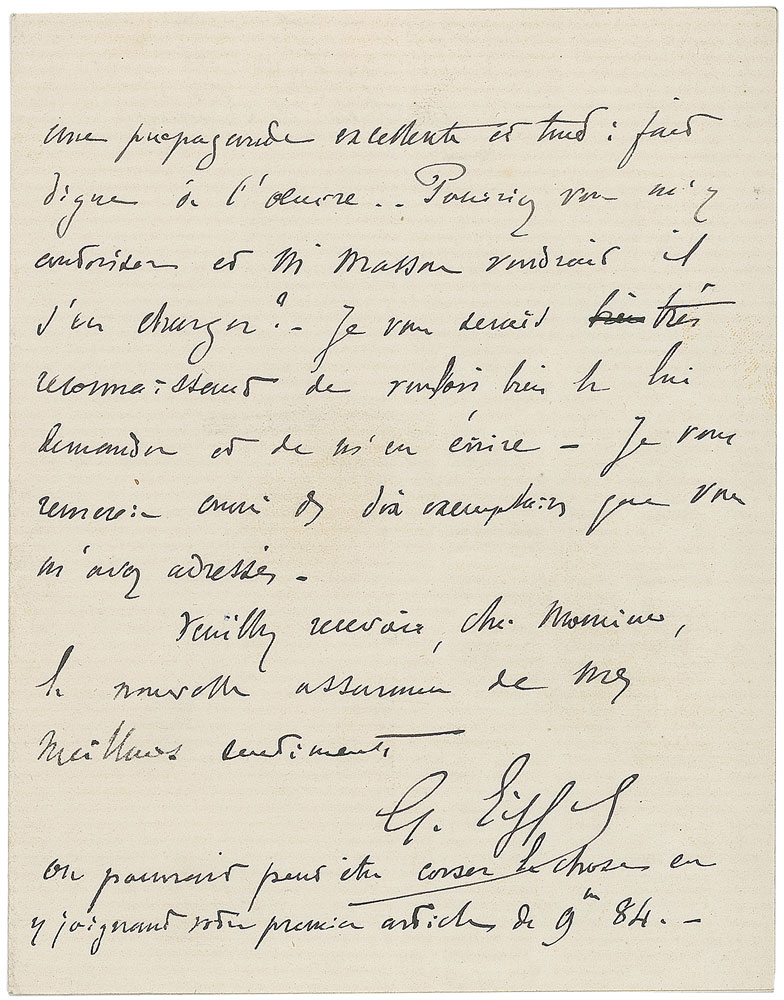 une propagande excellente et tout à fait
digne de l'œuvre.. Pourriez vous m'y
autoriser et M Masson voudrait il
s'en charger? - Je vous serais bien très
reconnaissant de vouloir bien le lui
demander et de m'en écrire - Je vous
remercie aussi des dix exemplaires que vous
m'avez adressés -
Veuillez recevoir, cher Monsieur,
la nouvelle assurance de mes
meilleurs sentiments
G. Eiffel
On pourrait peut être corser la chose en
y joignant votre premier article de 9bre 84. -